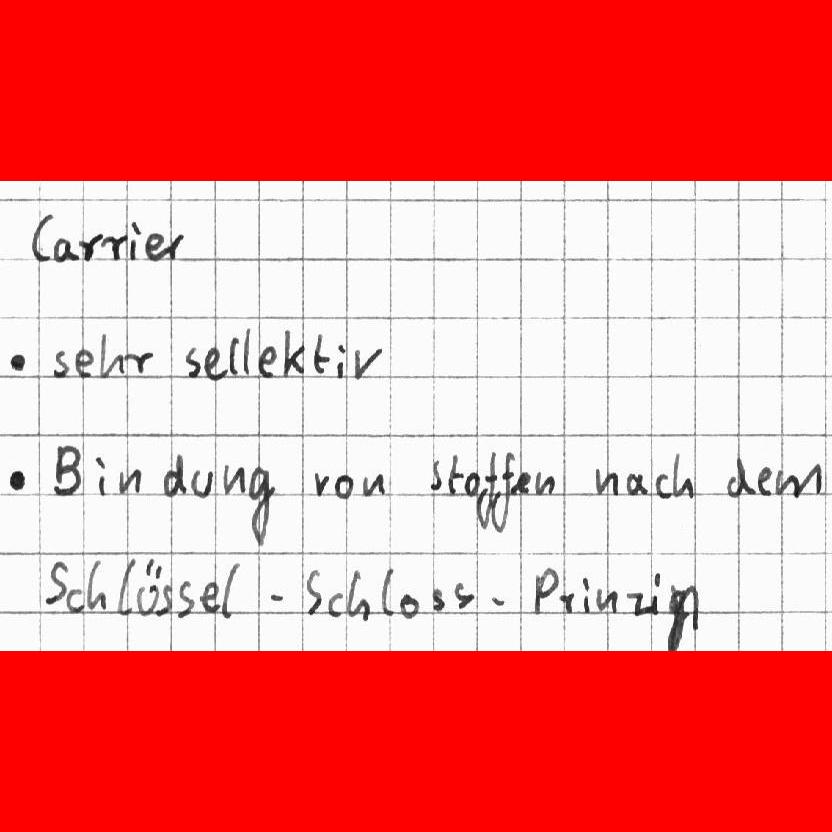 Carrier
• sehr sellektiv
• Bindung von stoffen nach dem
Schlössel - Schloss - Prinzip